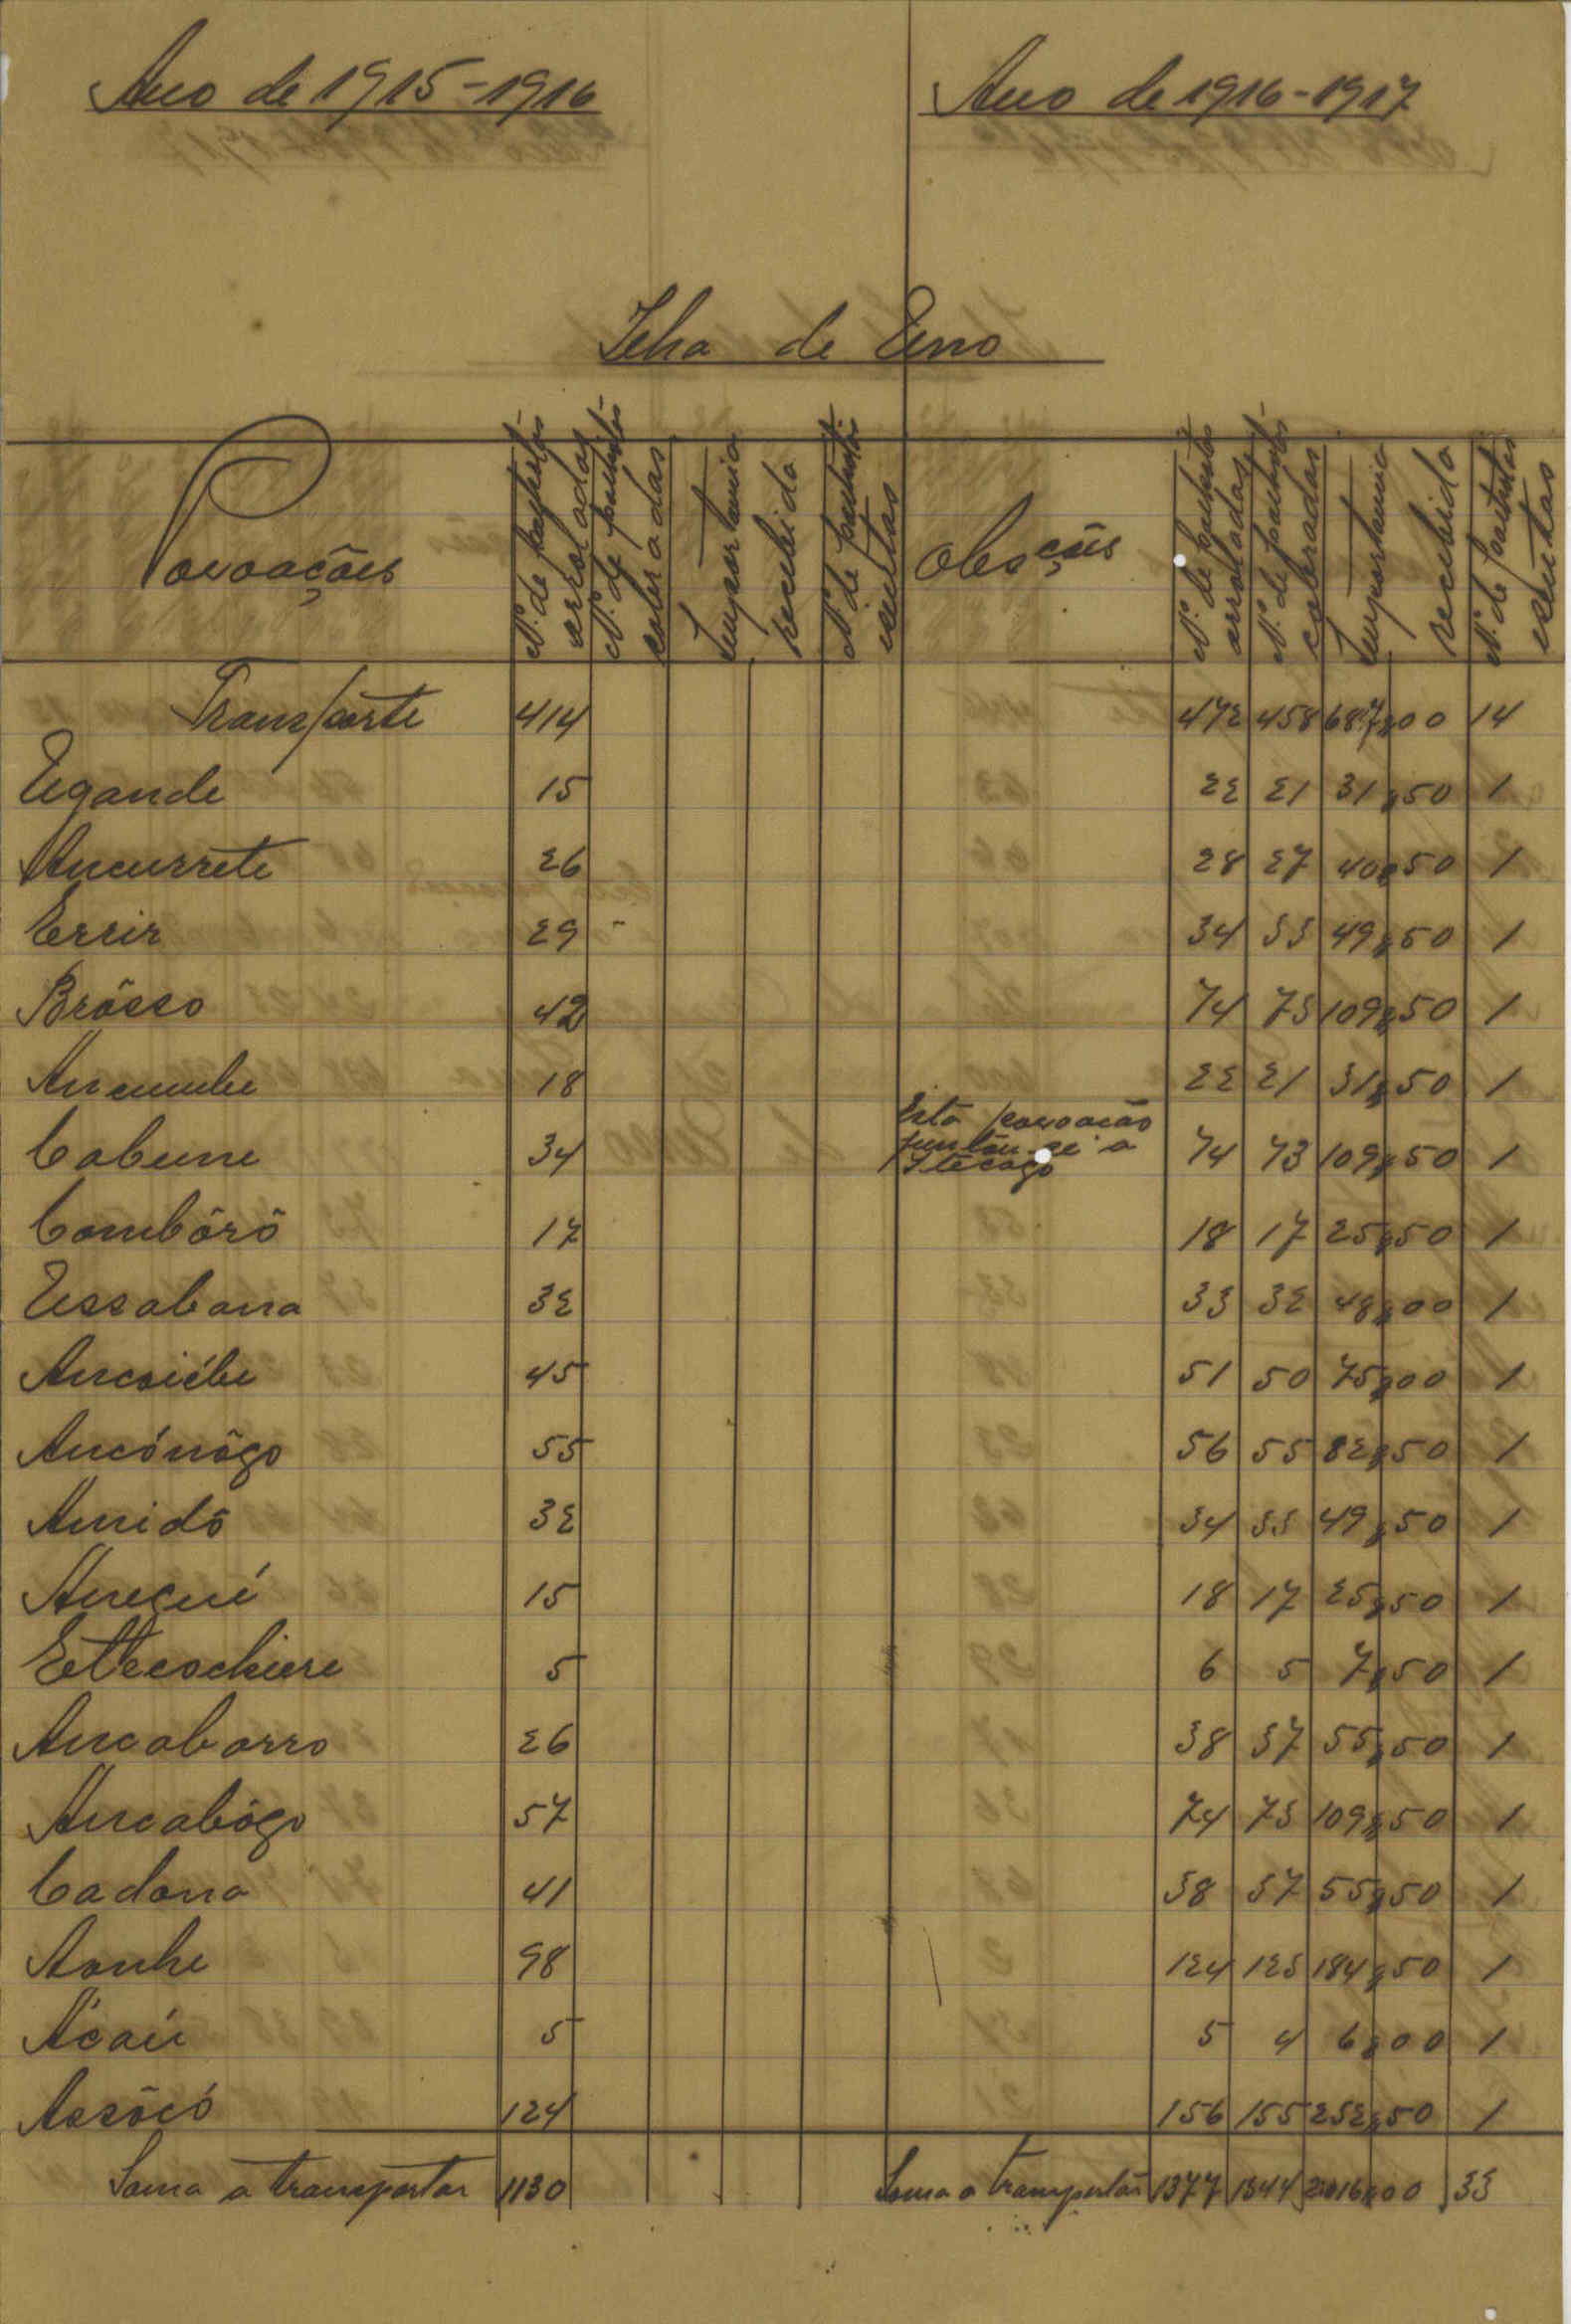 Ano de 1915-1916
Ano de 1916-1917
Ilha de Uno
Povoações
N.º de palhotas arroladas
N.º de palhotas cobradas
Importancia recebida
N.º de palhotas isentas
Obsções
N.º de palhotas arroladas
N.º de palhotas cobradas
Importancia recebida
N.º de palhotas isentas
Transporte 414 472 458 687$00 14
Egande 15 22 21 31$50 1
Ancurrete 26 28 27 40$50 1
Errir 29 - 34 33 49$50 1
Brôsso 42 74 73 109$50 1
Ancumbe 18 22 21 31$50 1
Cabune 34 Esta povoação juntou-se a 74 73 109$50 1
Combôrô 17 18 17 25$50 1
Essabana 32 33 32 48$00 1
Ancaiébe 45 51 50 75$00 1
Ancónôgo 55 56 55 82$50 1
Amidô 32 34 33 49$50 1
15 18 17 25$50 1
5 6 5 7$50 1
Ancabarro 26 38 37 55$50 1
Ancabôgo 57 74 73 109$50 1
Cadona 41 38 37 55$50 1
Aonhe 98 124 123 184$50 1
5 5 4 6$00 1
Assôcó 124 156 155 232$50 1
Soma a transportar 1130 Soma a transportar 1377 1344 2016$00 33